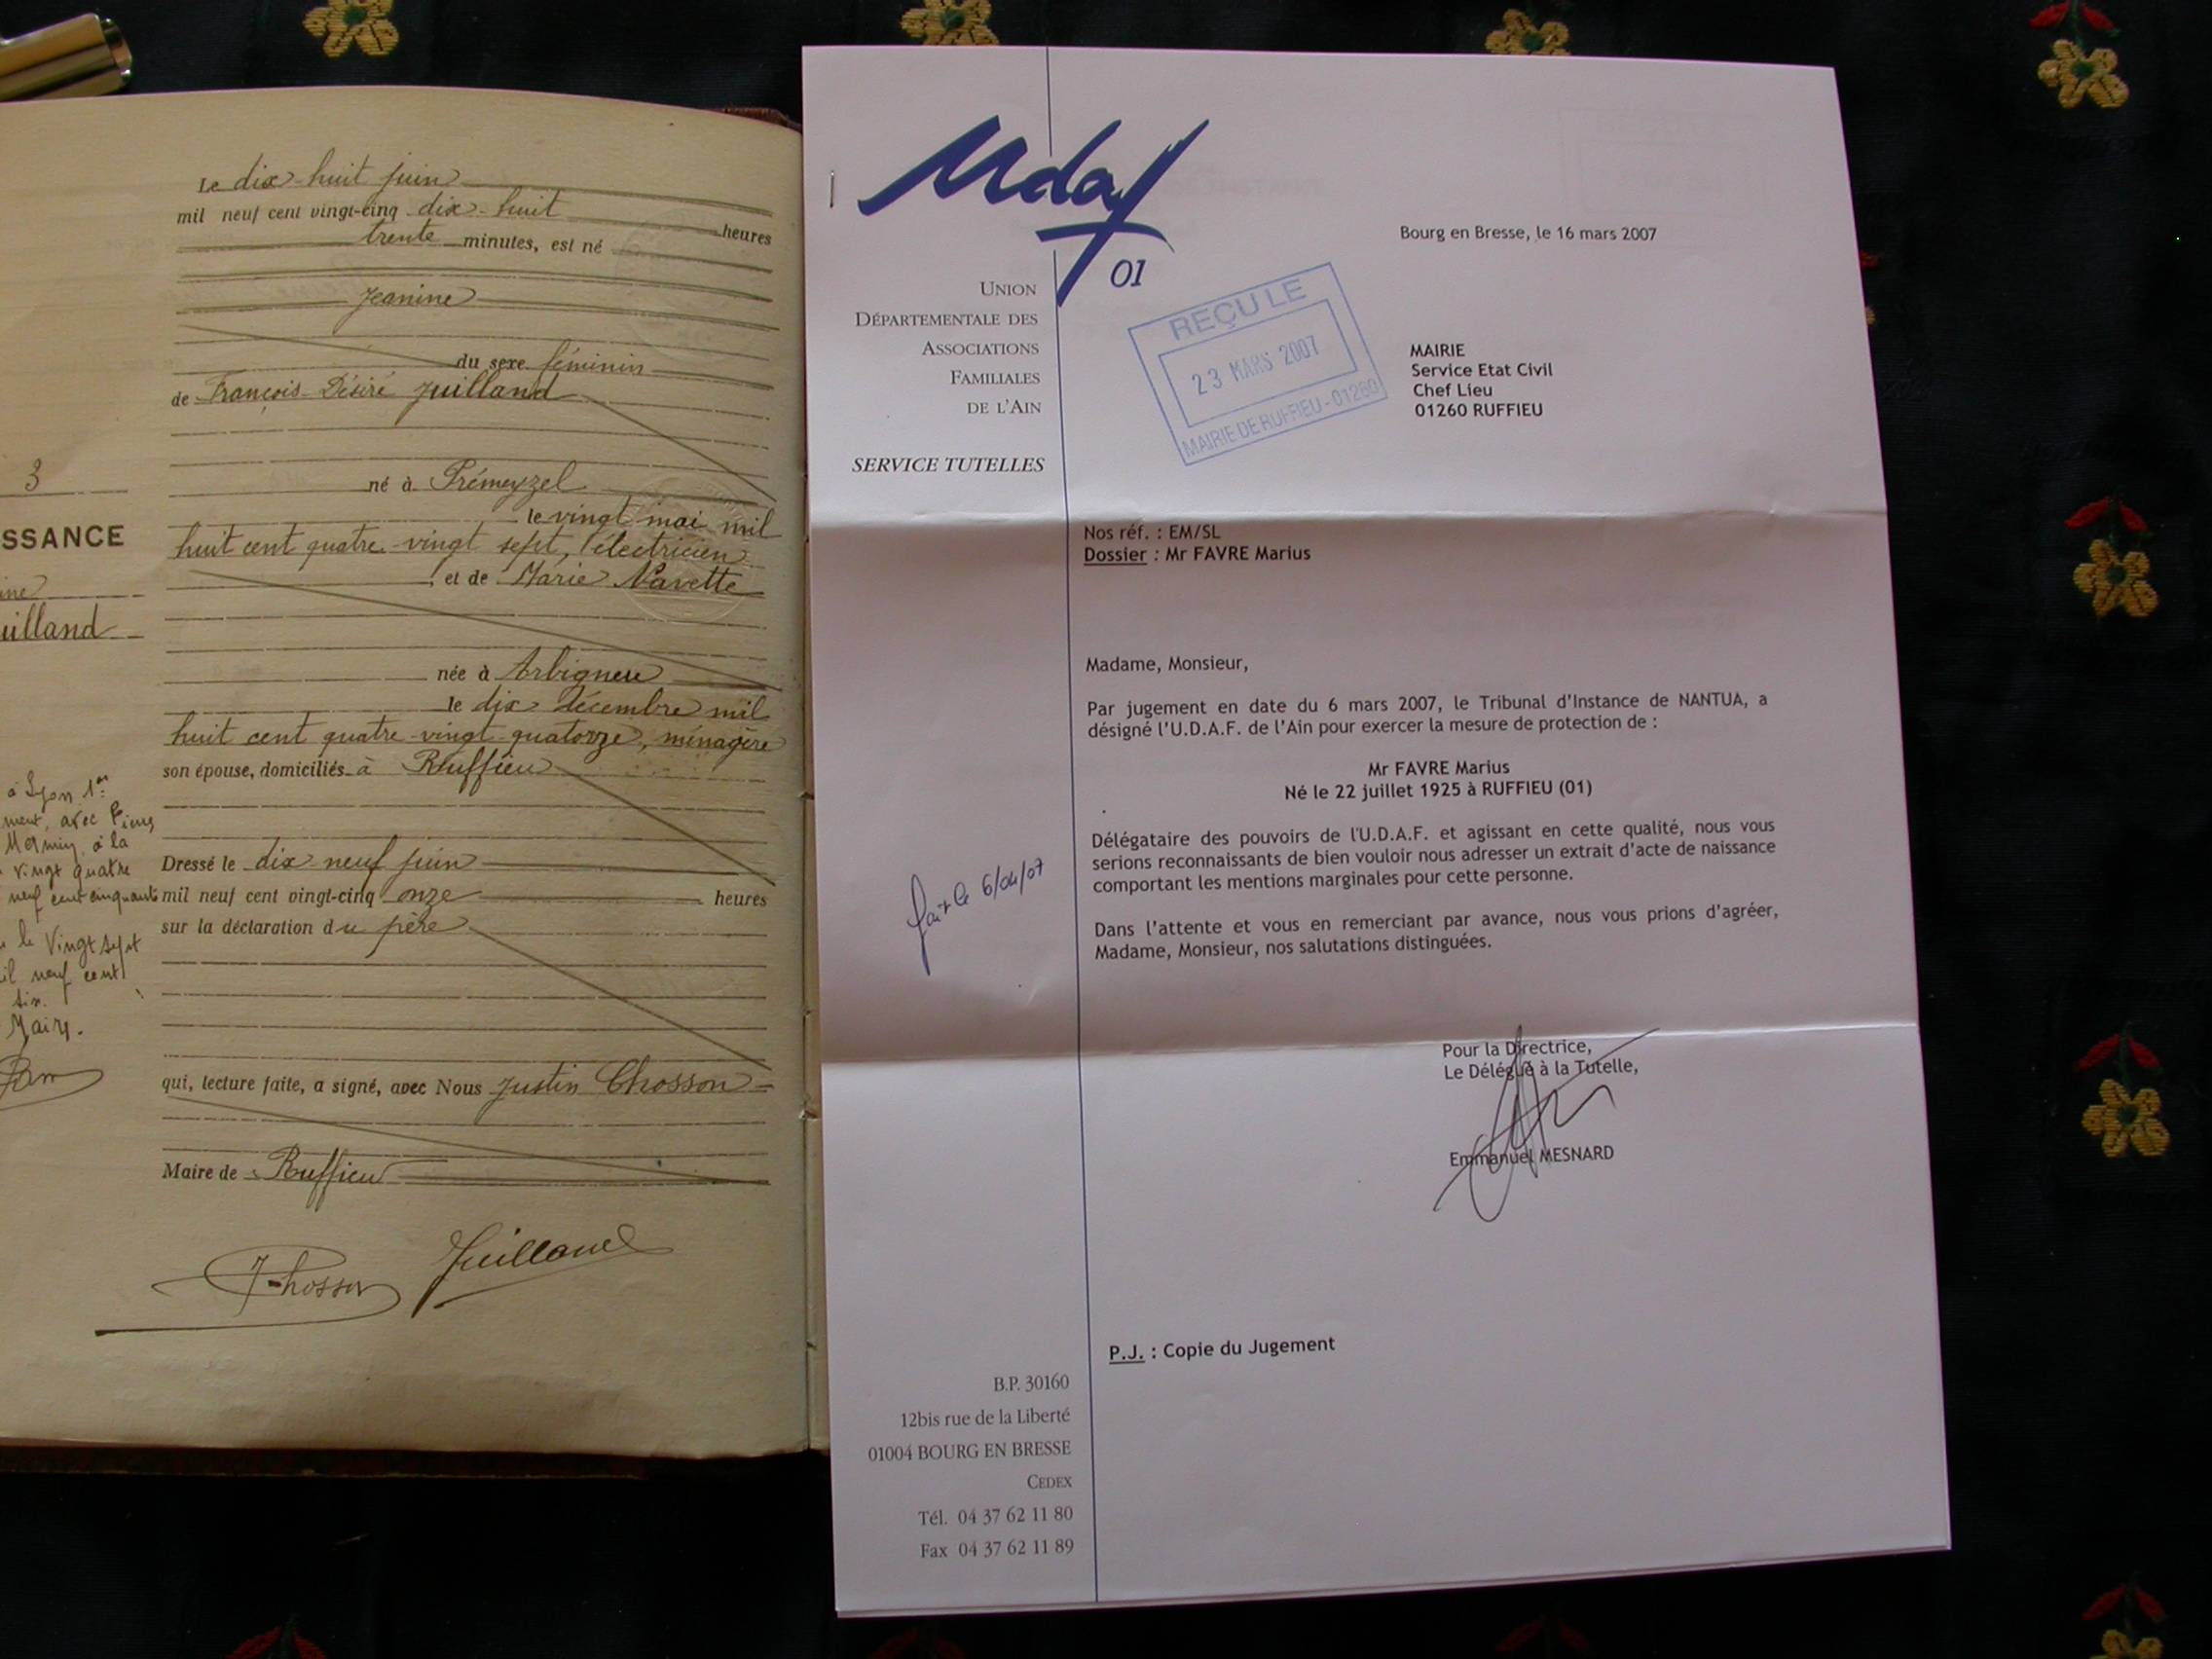 3
SSANCE
ine
uilland
à Lyon 1er
ment, avec Pierre
à la
vingt quatre
neuf cent cinquante
le vingt sept
il neuf cent
six.
Maire.
Le dix-huit juin
mil neuf cent vingt-cinq dix-huit heures
trente minutes, est né
Jeanine
du sexe féminin
de François Désiré Juilland
né à Prémeyzel
le vingt mai mil
huit cent quatre-vingt sept, électricien
, et de Marie Navette
née à Arbignieu
le dix décembre mil
huit cent quatre-vingt-quatorze, ménagère
son épouse, domiciliés à Ruffieu
Dressé le dix neuf juin
mil neuf cent vingt-cinq onze heures
sur la déclaration du père
qui, lecture faite, a signé, avec Nous Justin Chosson
Maire de Ruffieu
J Chosson Juilland
Udaf
01
UNION
DÉPARTEMENTALE DES
ASSOCIATIONS
FAMILIALES
DE L'AIN
SERVICE TUTELLES
REÇU LE
23 MARS 2007
MAIRIE DE RUFFIEU - 01260
Bourg en Bresse, le 16 mars 2007
MAIRIE
Service Etat Civil
Chef Lieu
01260 RUFFIEU
Nos réf. : EM/SL
Dossier : Mr FAVRE Marius
Madame, Monsieur,
Par jugement en date du 6 mars 2007, le Tribunal d'Instance de NANTUA, a
désigné l'U.D.A.F. de l'Ain pour exercer la mesure de protection de :
Mr FAVRE Marius
Né le 22 juillet 1925 à RUFFIEU (01)
Délégataire des pouvoirs de l'U.D.A.F. et agissant en cette qualité, nous vous
serions reconnaissants de bien vouloir nous adresser un extrait d'acte de naissance
comportant les mentions marginales pour cette personne.
fait le 6/04/07
Dans l'attente et vous en remerciant par avance, nous vous prions d'agréer,
Madame, Monsieur, nos salutations distinguées.
Pour la Directrice,
Le Délégué à la Tutelle,
Emmanuel MESNARD
P.J. : Copie du Jugement
B.P. 30160
12bis rue de la Liberté
01004 BOURG EN BRESSE
CEDEX
Tél. 04 37 62 11 80
Fax 04 37 62 11 89